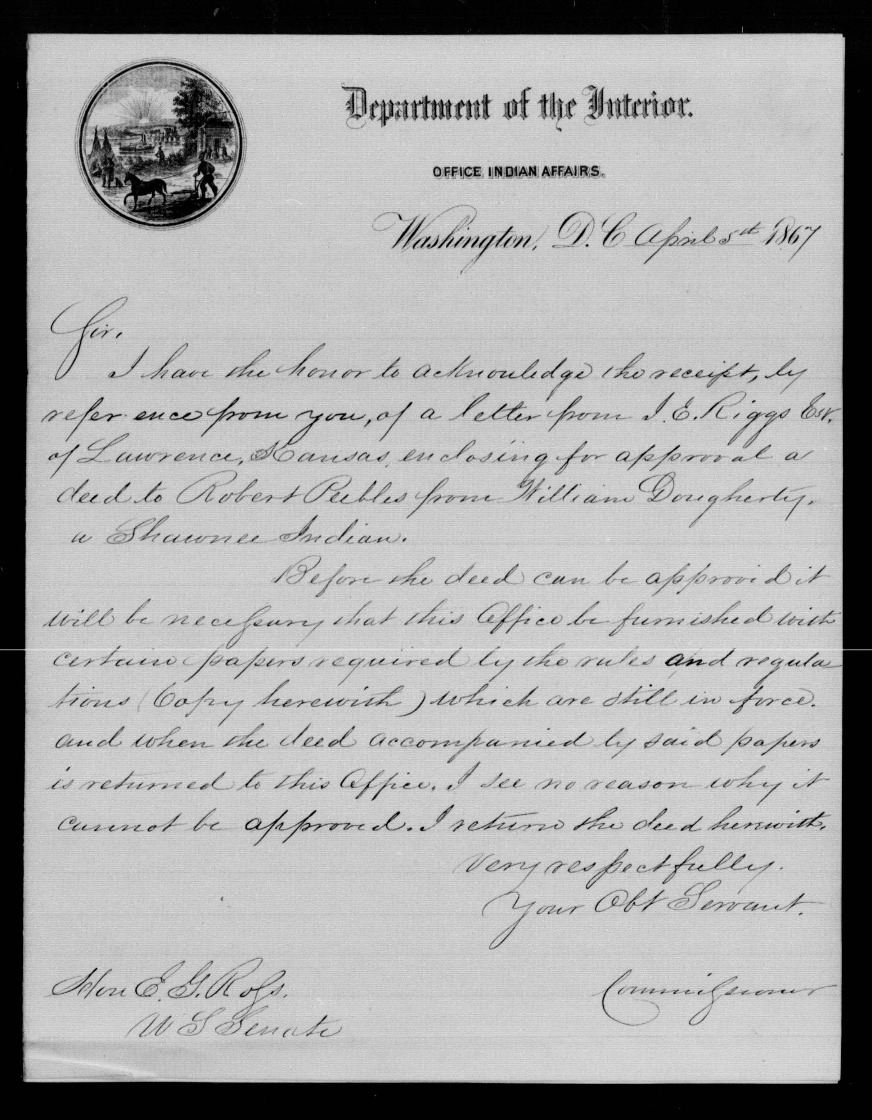 Department of the Interior.
OFFICE INDIAN AFFAIRS.
Washington, D.C. April 5th 1867
Sir,
I have the honor to acknowledge the receipt, by
reference from you, of a letter from I. E. Riggs Esr.
of Lawrence, Kansas, enclosing for approval a
deed to Robert Peebles from William Dougherty,
a Shawnee Indian.
Before the deed can be approved it
will be necessary that this Office be furnished with
certain papers required by the rules and regula
tions (Copy herewith) which are still in force.
and when the deed accompanied by said papers
is returned to this Office, I see no reason why it
cannot be approved. I return the deed herewith.
Very respectfully.
Your Obt Servant.
Commissioner
Hon E. G. Ross.
U S Senate